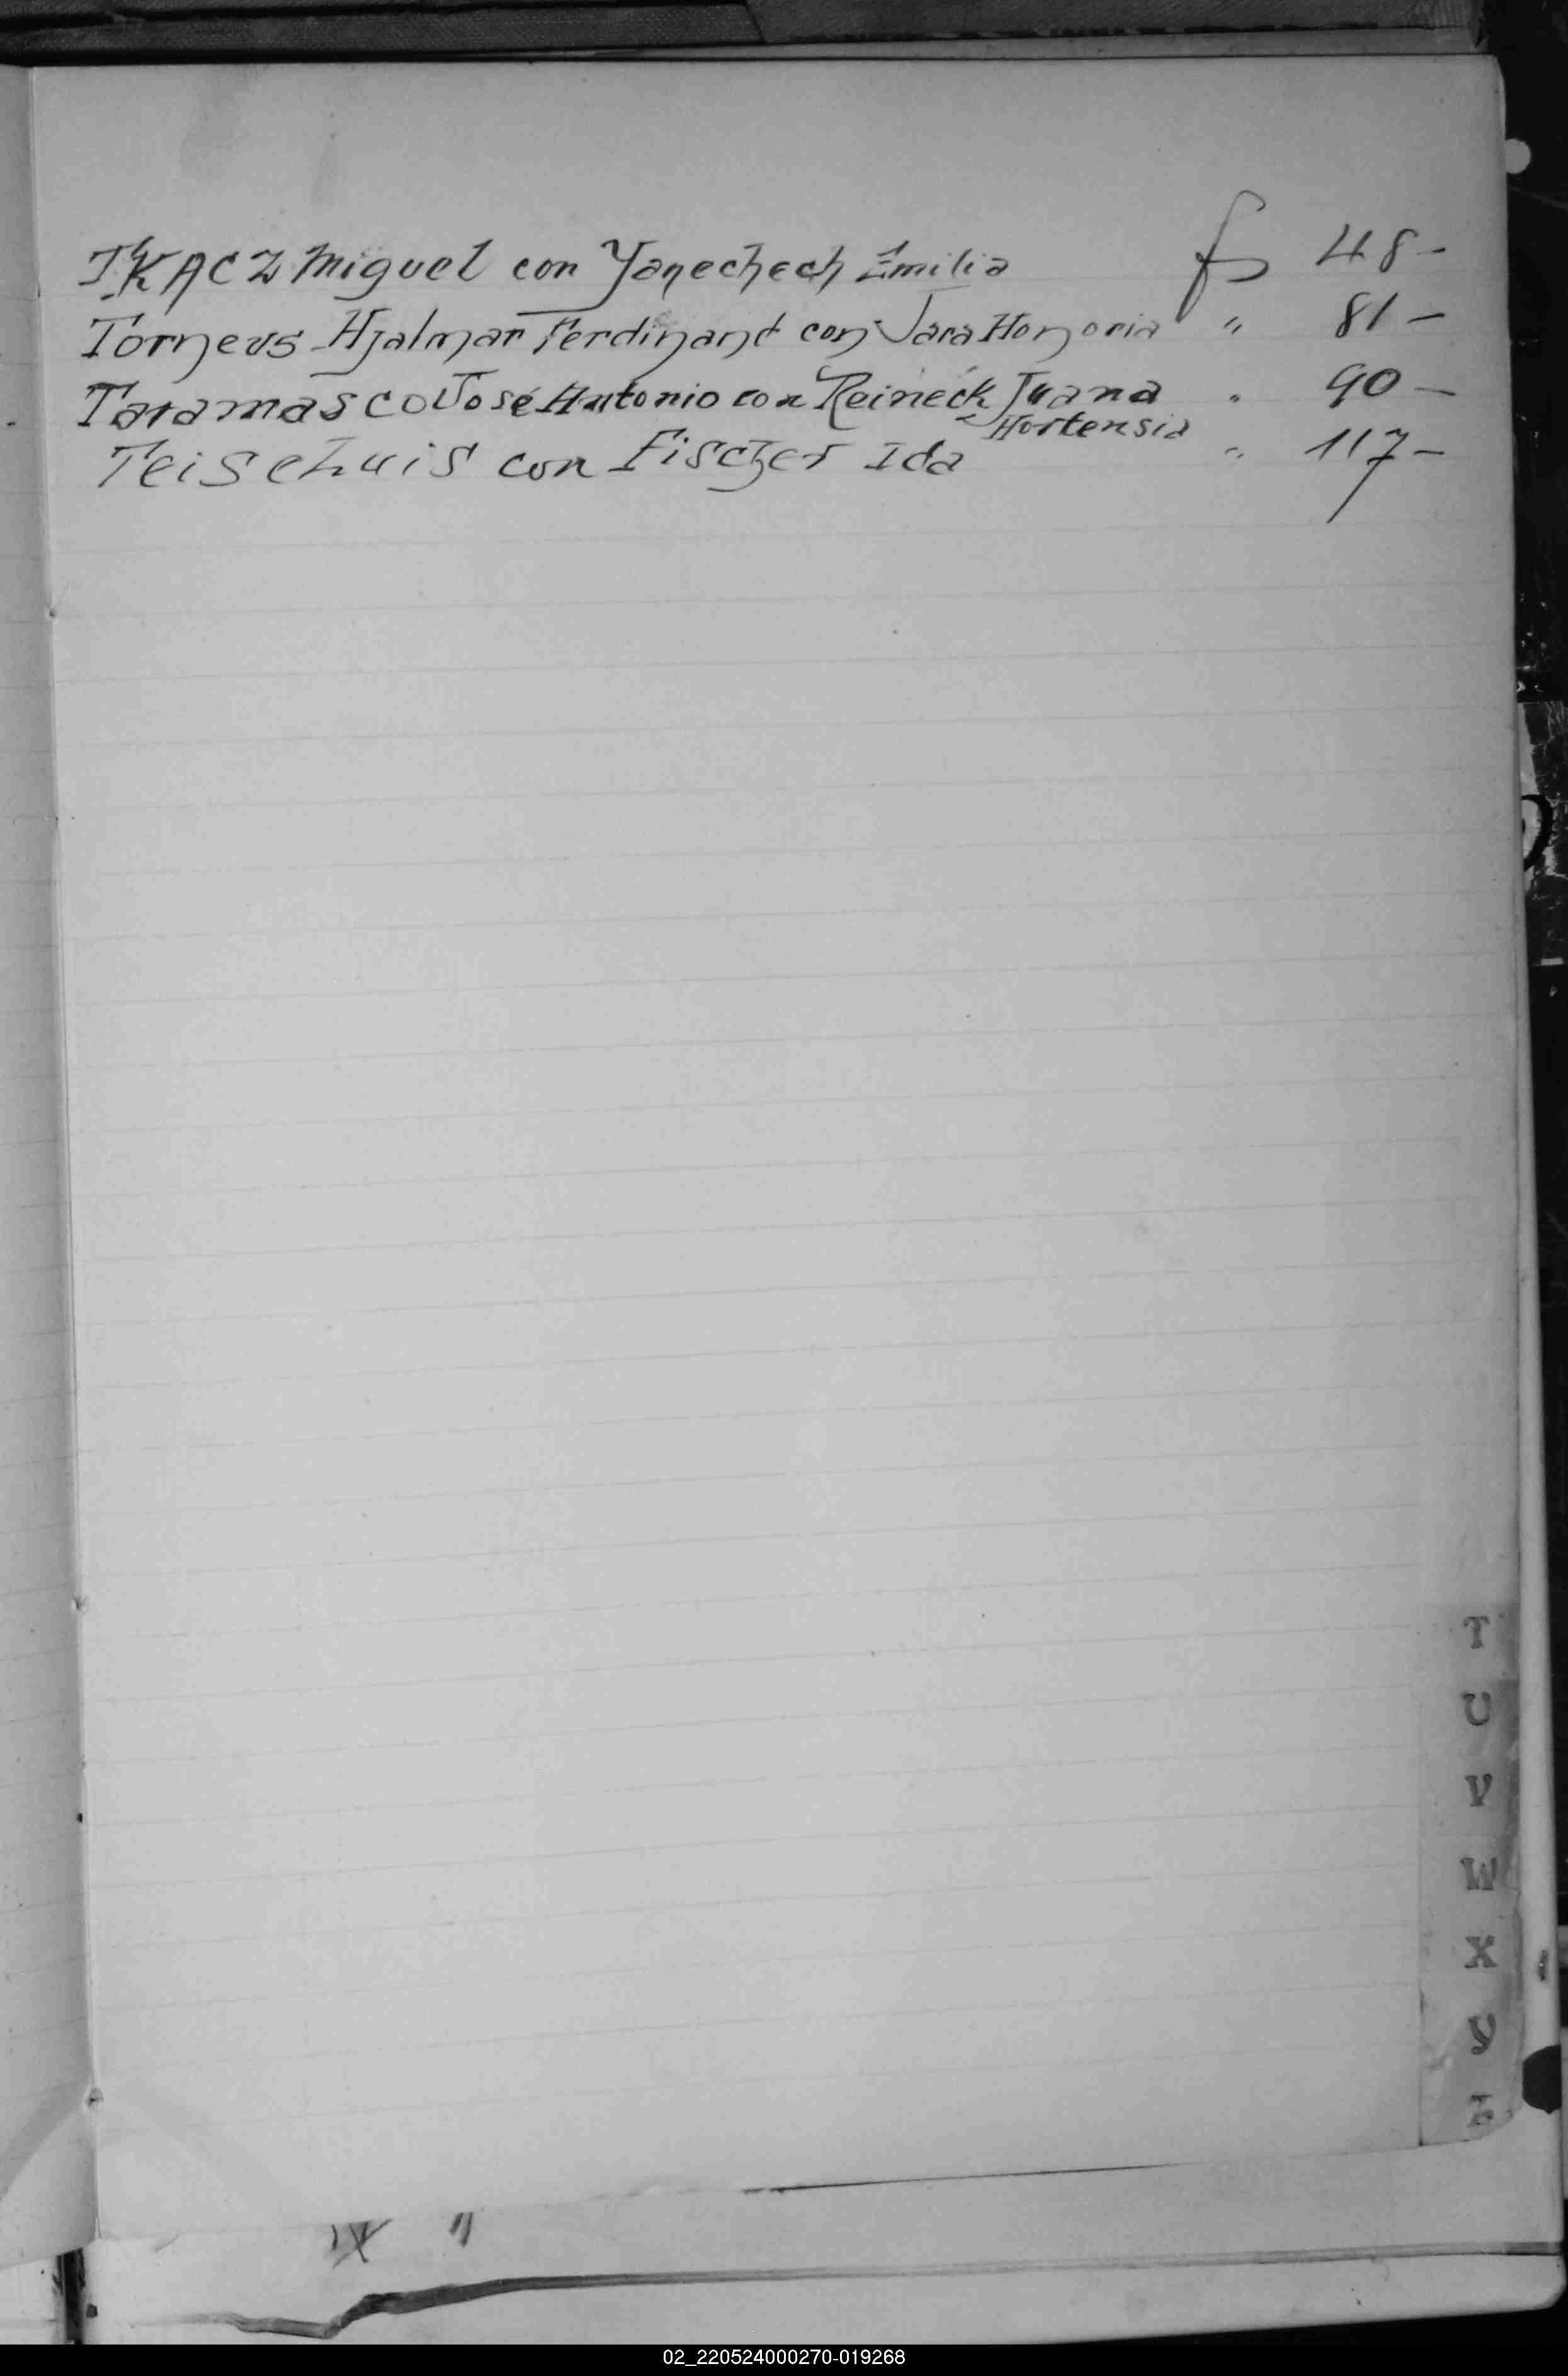 TKACZ Miguel con Yanechech Emilia fs 48-
Torneus Hjalmar Ferdinand con Jara Honoria " 81-
Taramasco José Antonio con Reineck Juana " 90-
Hortensia
Teise Luis con Fischer Ida " 117-
T
U
V
W
X
IX "
02_220524000270-019268